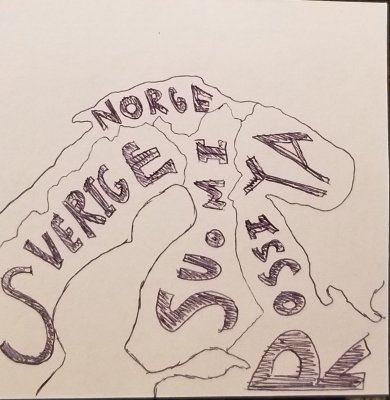 NORGE
SVERIGE
SUOMI
ROSSIYA